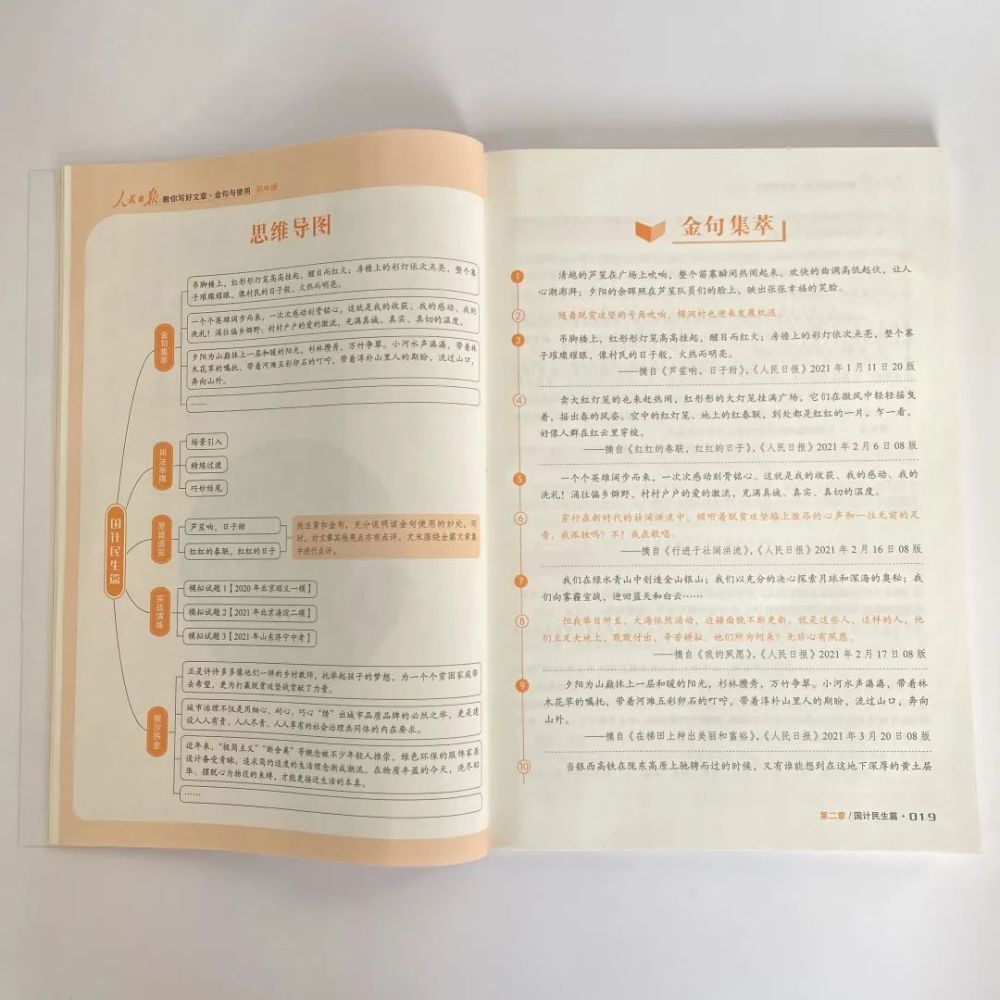 人民日报 教你写好文章·金句与使用 初中版
思维导图
国计民生篇
金句集萃
吊脚楼上，红彤彤灯笼高高挂起，醒目而红火；房檐上的彩灯依次点亮，整个寨
子璀璨耀眼，像村民的日子般，火热而明亮。
一个个英雄阔步而来，一次次感动刻骨铭心。这就是我的收获、我的感动、我的
洗礼！涌往偏乡僻野、村村户户的爱的激流，充满真诚、真实、真切的温度。
夕阳为山巅抹上一层和暖的阳光，杉林攒秀，万竹争翠。小河水声潺潺，带着林
木花草的嘱托，带着河滩五彩卵石的叮咛，带着淳朴山里人的期盼，流过山口，
奔向山外。
……
用法举隅
场景引入
精练过渡
巧妙结尾
原篇函览
芦笙响，日子甜
红红的春联，红红的日子
批注紧扣金句，充分说明该金句使用的妙处。同
时，对文章其他亮点亦有点评。文末围绕全篇文章集
中进行点评。
实战演练
模拟试题1【2020年北京顺义一模】
模拟试题2【2021年北京海淀二模】
模拟试题3【2021年山东济宁中考】
披沙拣金
正是许许多多像他们一样的乡村教师，托举起孩子的梦想，为一个个贫困家庭带
去希望，更为打赢脱贫攻坚战贡献了力量。
城市治理不仅是用细心、耐心、巧心“绣”出城市品质品牌的必然之举，更是建
设人人有责、人人尽责、人人享有的社会治理共同体的内在要求。
近年来，“极简主义”“断舍离”等概念被不少年轻人推崇，绿色环保的服饰家居
设计备受青睐，追求简约适度的生活理念渐成潮流。在物质丰盈的今天，洗尽铅
华、摆脱心为物役的束缚，才能更接近生活的本真。
……
金句集萃
1 清越的芦笙在广场上吹响，整个苗寨瞬间热闹起来。欢快的曲调高低起伏，让人
心潮澎湃；夕阳的余晖照在芦笙队员们的脸上，映出张张幸福的笑脸。
2 随着脱贫攻坚的号角吹响，偏洞村也迎来发展机遇。
3 吊脚楼上，红彤彤灯笼高高挂起，醒目而红火；房檐上的彩灯依次点亮，整个寨
子璀璨耀眼，像村民的日子般，火热而明亮。
——摘自《芦笙响，日子甜》，《人民日报》2021年1月11日20版
4 卖大红灯笼的也来赶热闹，红彤彤的大灯笼挂满广场，它们在微风中轻轻摇曳
着，摇出春的风姿。空中的红灯笼、地上的红春联，到处都是红红的一片，乍一看，
好像人群在红云里穿梭。
——摘自《红红的春联，红红的日子》，《人民日报》2021年2月6日08版
5 一个个英雄阔步而来，一次次感动刻骨铭心。这就是我的收获、我的感动、我的
洗礼！涌往偏乡僻野、村村户户的爱的激流，充满真诚、真实、真切的温度。
6 穿行在新时代的壮阔洪流中，倾听着脱贫攻坚路上激昂的心声和一往无前的足
音，我孤独吗？不！我在歌唱。
——摘自《行进于壮阔洪流》，《人民日报》2021年2月16日08版
7 我们在绿水青山中创造金山银山；我们以充分的决心探索月球和深海的奥秘；我
们向雾霾宣战，迎回蓝天和白云……
8 但我举目所至，大海依然涌动，边疆面貌不断更新。就是这些人，这样的人，他
们立足大地上，默默付出，辛苦耕耘。他们所为何来？无非心有夙愿。
——摘自《我的夙愿》，《人民日报》2021年2月17日08版
9 夕阳为山巅抹上一层和暖的阳光，杉林攒秀，万竹争翠。小河水声潺潺，带着林
木花草的嘱托，带着河滩五彩卵石的叮咛，带着淳朴山里人的期盼，流过山口，奔向
山外。
——摘自《在梯田上种出美丽和富裕》，《人民日报》2021年3月20日08版
10 当银西高铁在陇东高原上驰骋而过的时候，又有谁能想到在这地下深厚的黄土层
第二章/国计民生篇·019